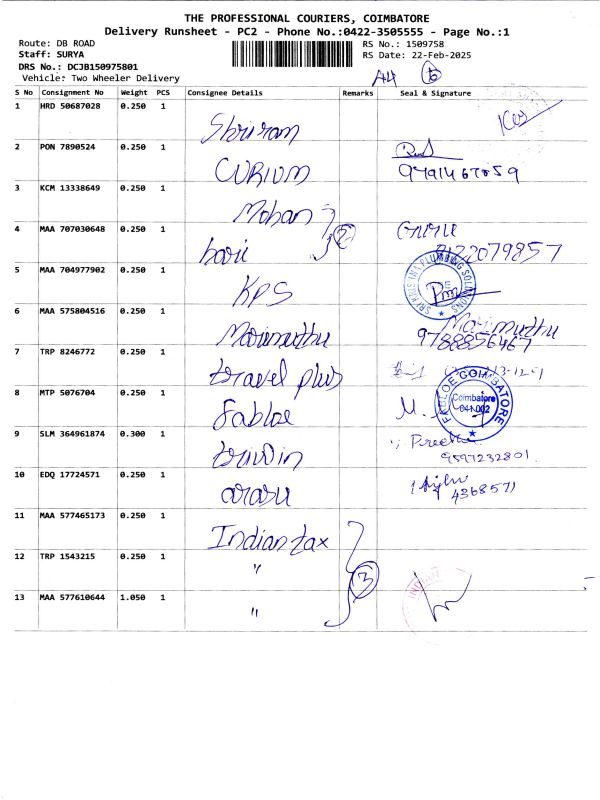 THE PROFESSIONAL COURIERS, COIMBATORE
Delivery Runsheet - PC2 - Phone No.:0422-3505555 - Page No.:1
Route: DB ROAD
Staff: SURYA
DRS No.: DCJB150975801
Vehicle: Two Wheeler Delivery
RS No.: 1509758
RS Date: 22-Feb-2025
S No Consignment No Weight PCS Consignee Details Remarks Seal & Signature
1 HRD 50687028 0.250 1 Shriram
2 PON 7890524 0.250 1 CURIUM 9791467859
3 KCM 13338649 0.250 1 Mohan
4 MAA 707030648 0.250 1 hari 2
5 MAA 704977902 0.250 1 KPS
6 MAA 575804516 0.250 1 Marimuthu Marimuthu
9788856467
7 TRP 8246772 0.250 1 travel plus
8 MTP 5076704 0.250 1 Fabloe FABLOE COIMBATORE
Coimbatore
641 002
9 SLM 364961874 0.300 1 9597232801
10 EDQ 17724571 0.250 1 arasu 4368571
11 MAA 577465173 0.250 1 Indian tax
12 TRP 1543215 0.250 1 " 3
13 MAA 577610644 1.050 1 "